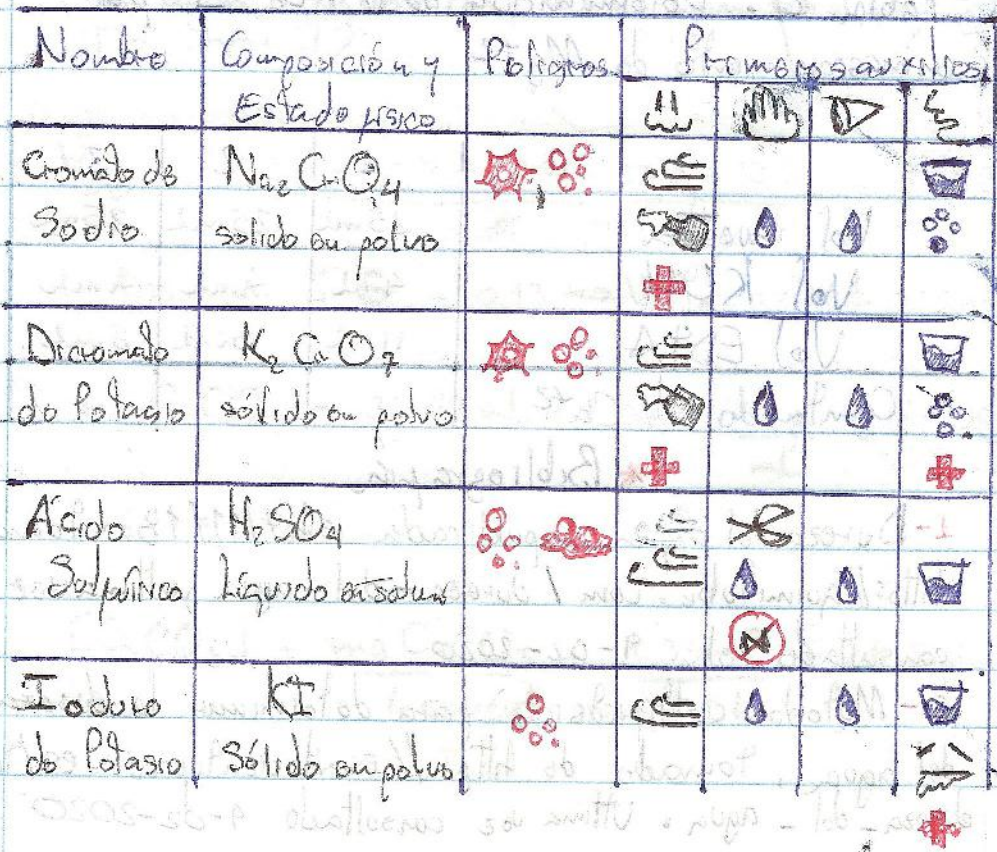 Nombre
Composición y
Estado físico
Peligros
Primeros auxilios
Cromato de
Sodio
Na₂CrO₄
solido en polvo
Dicromato
de Potasio
K₂CrO₇
sólido en polvo
Ácido
Sulfúrico
H₂SO₄
Líquido
Ioduro
de Potasio
KI
Sólido en polvo